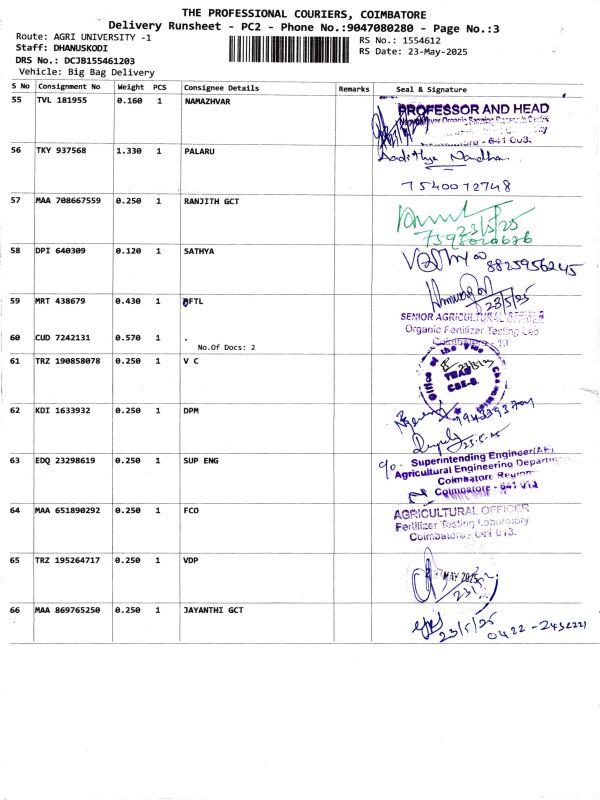 THE PROFESSIONAL COURIERS, COIMBATORE
Delivery Runsheet - PC2 - Phone No.:9047080280 - Page No.:3
Route: AGRI UNIVERSITY -1
RS No.: 1554612
Staff: DHANUSKODI
RS Date: 23-May-2025
DRS No.: DCJB155461203
Vehicle: Big Bag Delivery
S No Consignment No Weight PCS Consignee Details Remarks Seal & Signature
55 TVL 181955 0.160 1 NAMAZHVAR
PROFESSOR AND HEAD
641 003.
56 TKY 937568 1.330 1 PALARU
Aadithya Nandhan
7540012748
57 MAA 708667559 0.250 1 RANJITH GCT
23/5/25
7598020676
58 DPI 640309 0.120 1 SATHYA
8825956245
59 MRT 438679 0.430 1 OFTL
23/5/25
SENIOR AGRICULTURAL OFFICER
Organic Fertilizer Testing Lab
60 CUD 7242131 0.570 1 .
No.Of Docs: 2
Office of the
61 TRZ 190858078 0.250 1 V C
TNAU
CBE-3.
62 KDI 1633932 0.250 1 DPM
23.5.25
63 EDQ 23298619 0.250 1 SUP ENG
Superintending Engineer(AE)
Agricultural Engineering Department
Coimbatore Region
Coimbatore - 641 013
64 MAA 651890292 0.250 1 FCO
AGRICULTURAL OFFICER
Fertilizer Testing Laboratory
Coimbatore - 641 013.
65 TRZ 195264717 0.250 1 VDP
MAY 2025
66 MAA 869765250 0.250 1 JAYANTHI GCT
23/5/25
0422-2432221